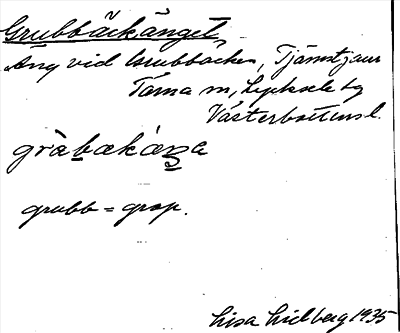 Grubbäckänget
Äng vid Grubbäcken, Tjämtjaur
Tärna sn, Lycksele tg
Västerbottens l.
gràbækàŋa
grubb = grop.
Lisa Lidberg 1935